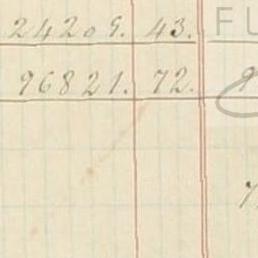 24209. 43.
96821. 72.